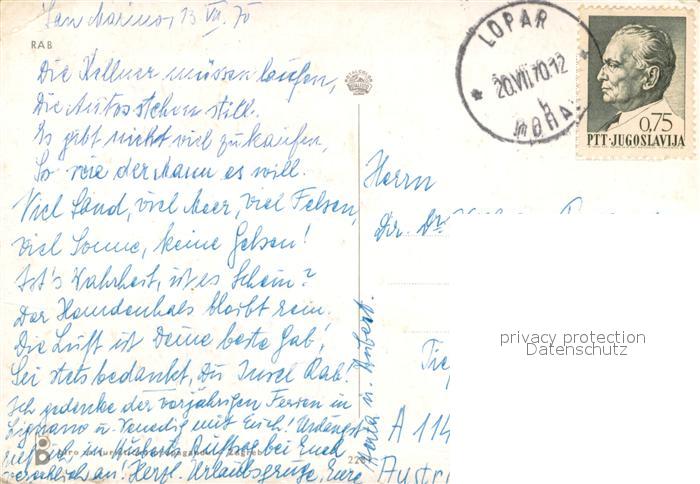 San Marino, 13 VII 70
RAB
Die Kellner müssen laufen,
Die Autos stehen still.
Es gibt nicht viel zu kaufen,
So wie der Mann es will.
Viel Sand, viel Meer, viel Felsen,
Viel Sonne, keine Gelsen!
Ist's Wahrheit, ist es Schein?
Der Hemdenhals bleibt rein.
Die Luft ist Deine beste Gab',
Sei stets bedankt, Du Insel Rab!
Ich gedenke der vorjährigen Ferien in
Lignano u. Venedig mit Euch! Unlängst
rief ich in Hubert's Auftrag bei Euch
an! Herzl. Urlaubsgrüße, Eure
Herta u. Hubert.
LOPAR
20.VII.70.12
h
PTT·JUGOSLAVIJA
0,75
Herrn
Dir. Dr.
A 114
Austri
privacy protection
Datenschutz
Zagreb